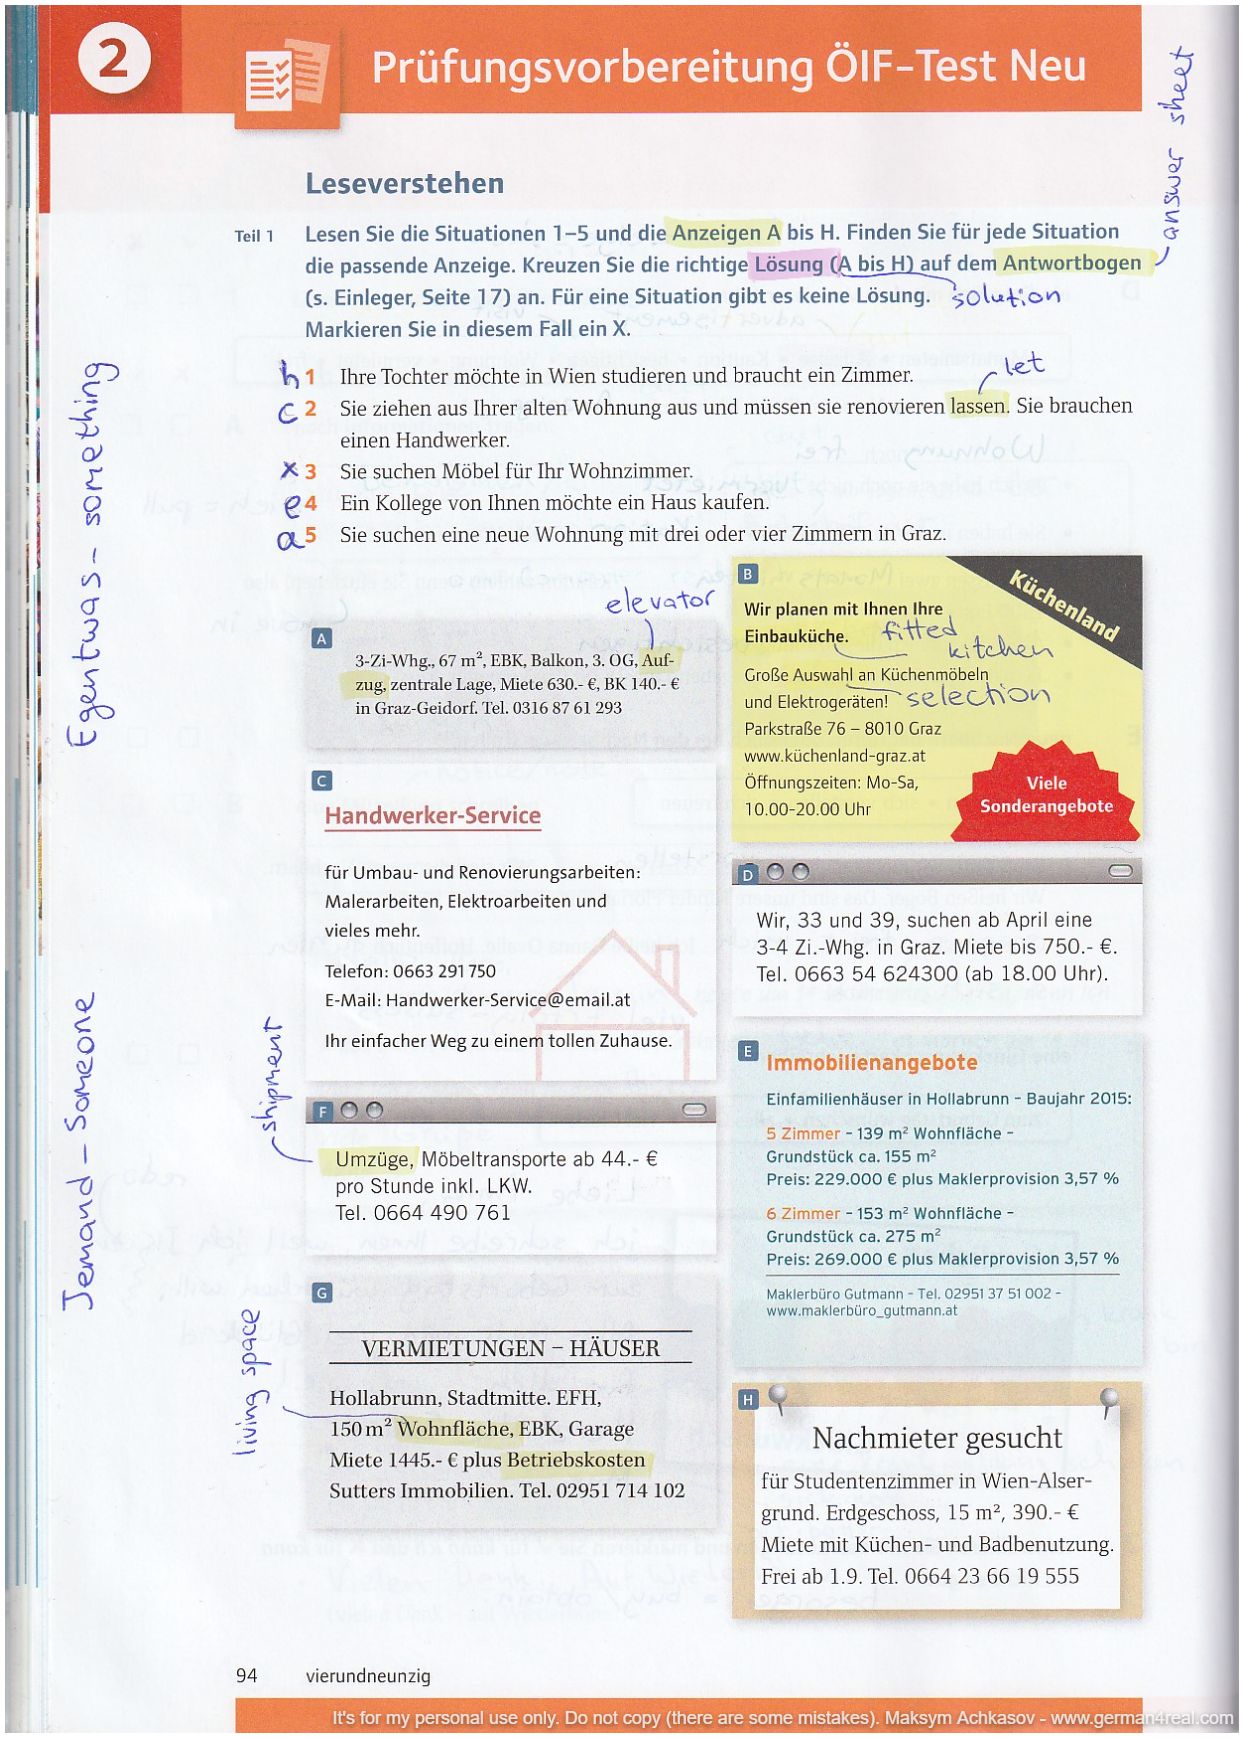 2
Prüfungsvorbereitung ÖIF-Test Neu
answer sheet
Leseverstehen
Teil 1
Lesen Sie die Situationen 1–5 und die Anzeigen A bis H. Finden Sie für jede Situation
die passende Anzeige. Kreuzen Sie die richtige Lösung (A bis H) auf dem Antwortbogen
(s. Einleger, Seite 17) an. Für eine Situation gibt es keine Lösung. solution
Markieren Sie in diesem Fall ein X.
let
h 1 Ihre Tochter möchte in Wien studieren und braucht ein Zimmer.
c 2 Sie ziehen aus Ihrer alten Wohnung aus und müssen sie renovieren lassen. Sie brauchen
einen Handwerker.
x 3 Sie suchen Möbel für Ihr Wohnzimmer.
e 4 Ein Kollege von Ihnen möchte ein Haus kaufen.
a 5 Sie suchen eine neue Wohnung mit drei oder vier Zimmern in Graz.
Egentwas - something
Jemand - Someone
elevator
A
3-Zi-Whg., 67 m², EBK, Balkon, 3. OG, Auf-
zug, zentrale Lage, Miete 630.- €, BK 140.- €
in Graz-Geidorf. Tel. 0316 87 61 293
B
Küchenland
Wir planen mit Ihnen Ihre
Einbauküche. fitted
kitchen
Große Auswahl an Küchenmöbeln
und Elektrogeräten! selection
Parkstraße 76 – 8010 Graz
www.küchenland-graz.at
Öffnungszeiten: Mo-Sa,
10.00-20.00 Uhr
Viele
Sonderangebote
C
Handwerker-Service
für Umbau- und Renovierungsarbeiten:
Malerarbeiten, Elektroarbeiten und
vieles mehr.
Telefon: 0663 291 750
E-Mail: Handwerker-Service@email.at
Ihr einfacher Weg zu einem tollen Zuhause.
D
Wir, 33 und 39, suchen ab April eine
3-4 Zi.-Whg. in Graz. Miete bis 750.- €.
Tel. 0663 54 624300 (ab 18.00 Uhr).
E
Immobilienangebote
Einfamilienhäuser in Hollabrunn – Baujahr 2015:
5 Zimmer – 139 m² Wohnfläche –
Grundstück ca. 155 m²
Preis: 229.000 € plus Maklerprovision 3,57 %
6 Zimmer – 153 m² Wohnfläche –
Grundstück ca. 275 m²
Preis: 269.000 € plus Maklerprovision 3,57 %
Maklerbüro Gutmann – Tel. 02951 37 51 002 –
www.maklerbüro_gutmann.at
shipment
F
Umzüge, Möbeltransporte ab 44.- €
pro Stunde inkl. LKW.
Tel. 0664 490 761
living space
G
VERMIETUNGEN – HÄUSER
Hollabrunn, Stadtmitte. EFH,
150 m² Wohnfläche, EBK, Garage
Miete 1445.- € plus Betriebskosten
Sutters Immobilien. Tel. 02951 714 102
H
Nachmieter gesucht
für Studentenzimmer in Wien-Alser-
grund. Erdgeschoss, 15 m², 390.- €
Miete mit Küchen- und Badbenutzung.
Frei ab 1.9. Tel. 0664 23 66 19 555
94 vierundneunzig
It's for my personal use only. Do not copy (there are some mistakes). Maksym Achkasov - www.german4real.com